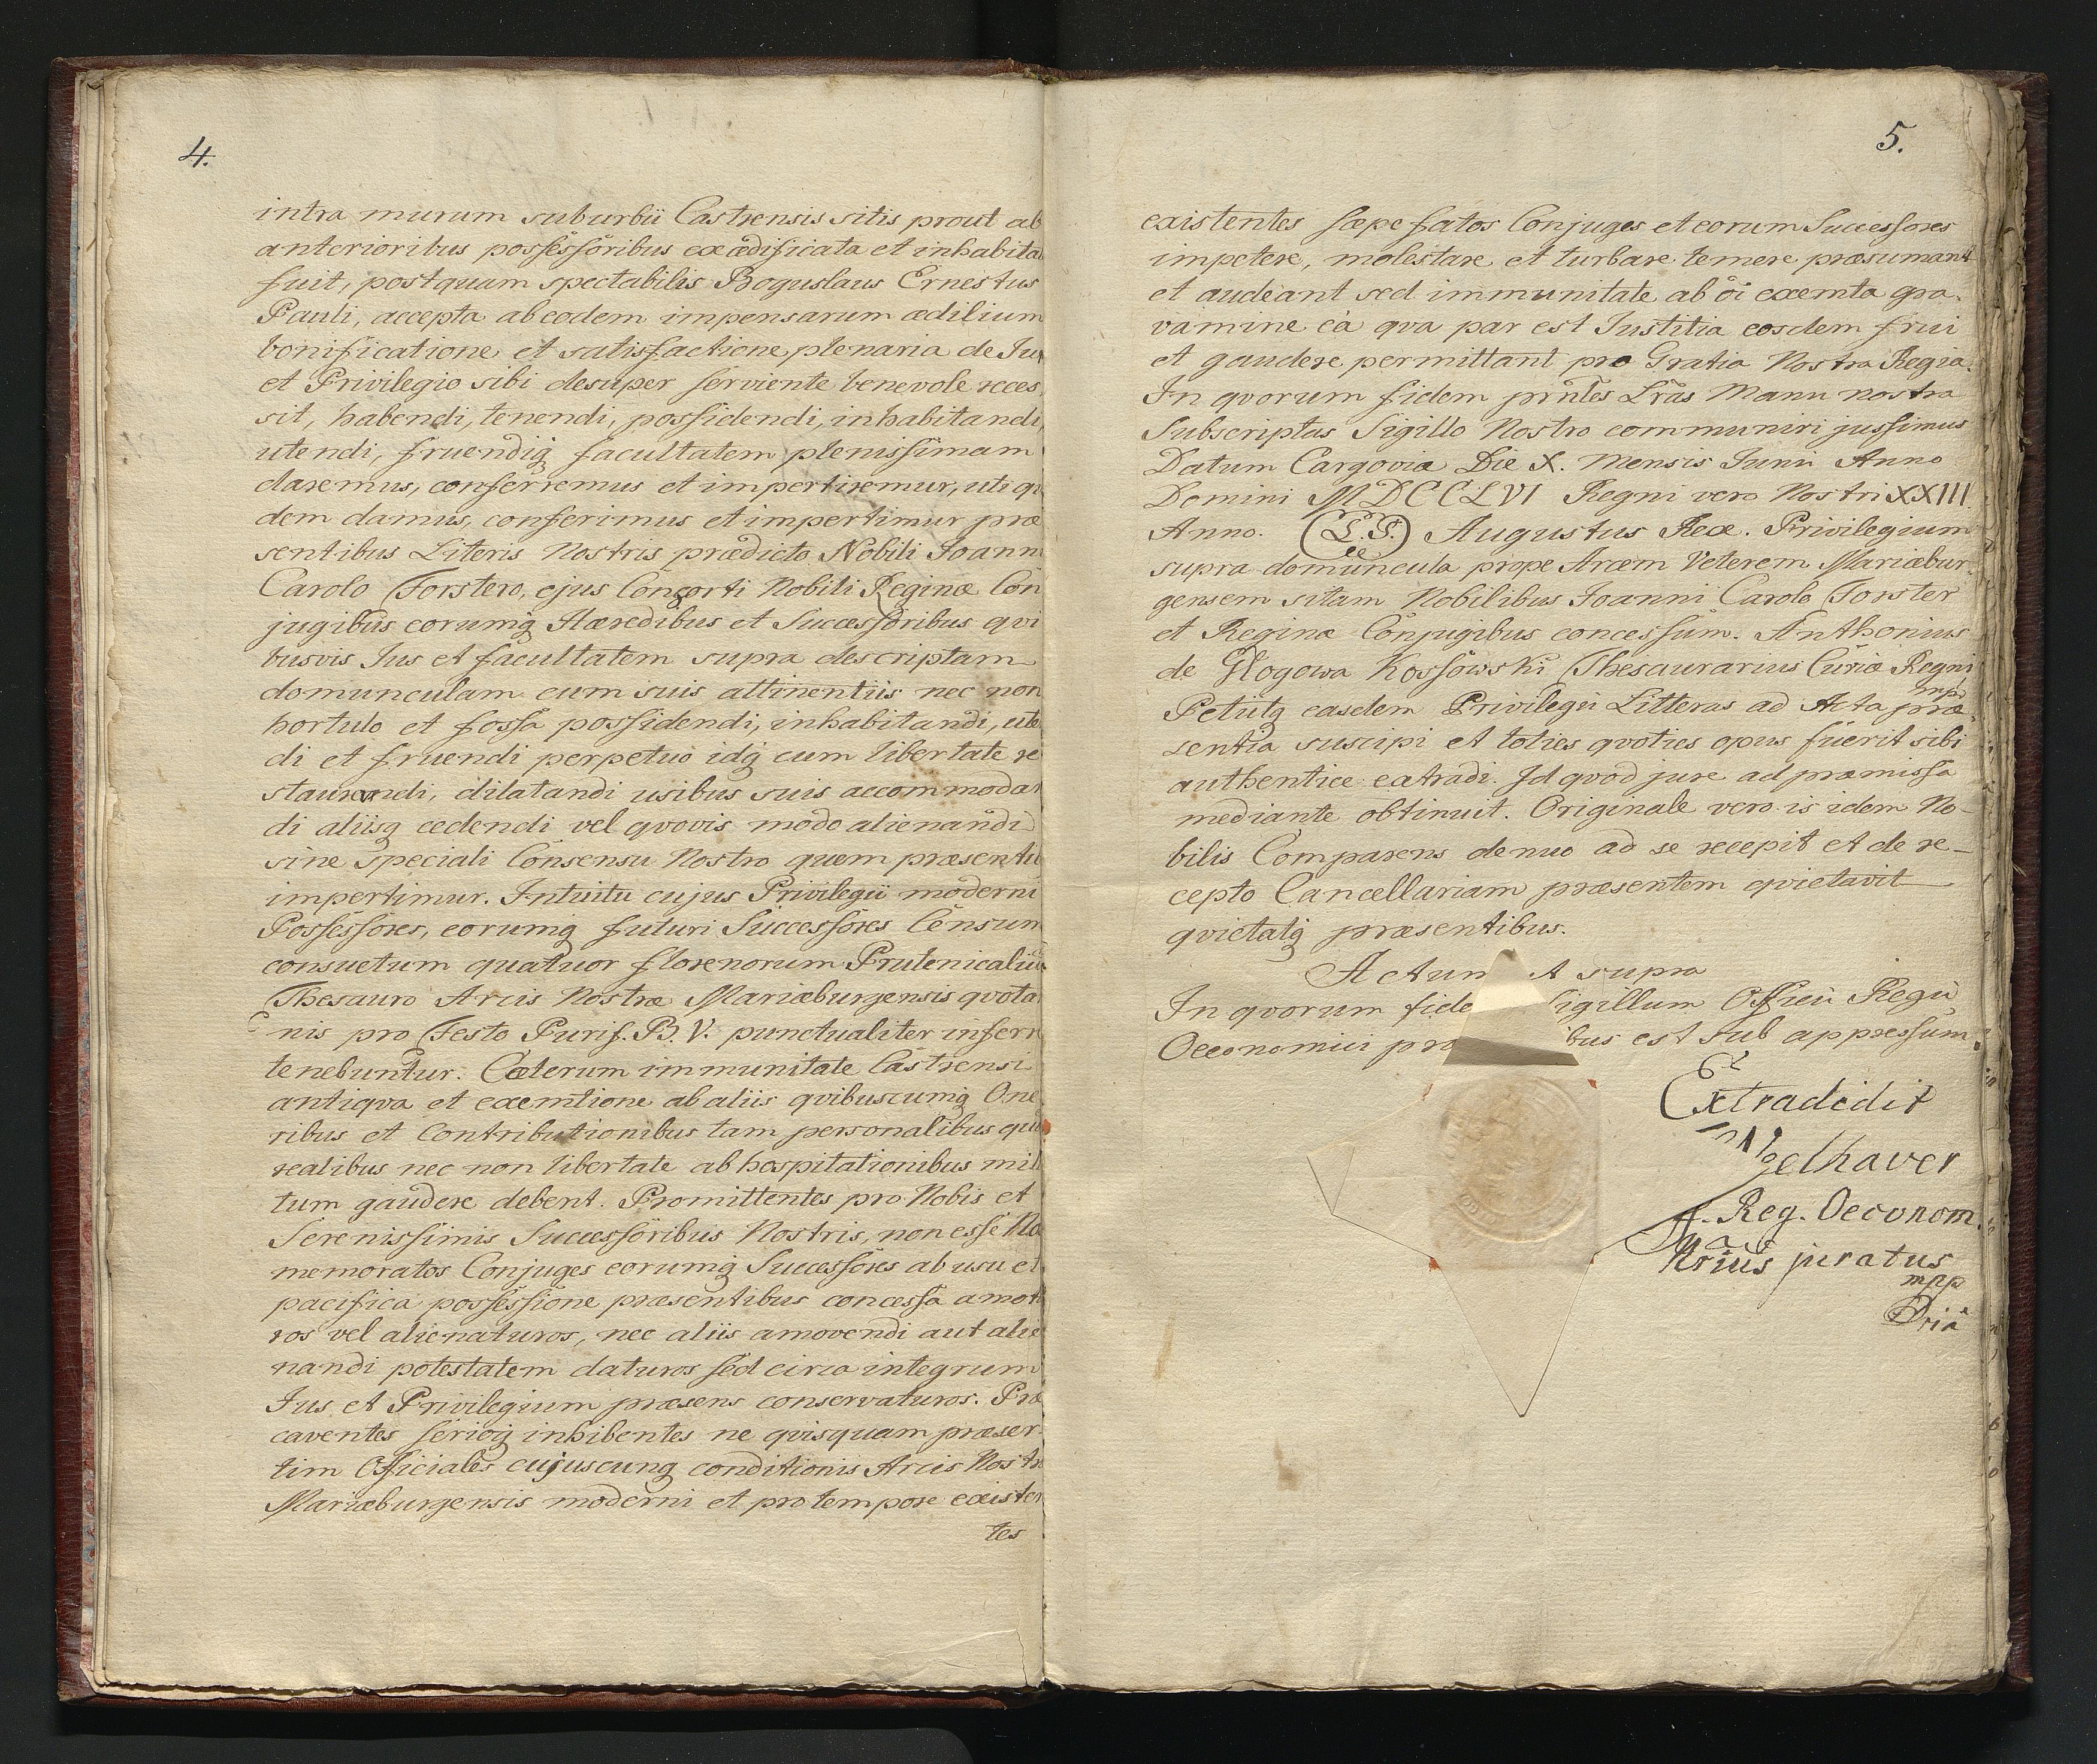 4.
intra murum suburbii Castrensis sitis prout ab
anterioribus possessoribus exædificata et inhabita
fuit, postquam spectabilis Boguslaus Ernestus
Pauli, accepta ab eodem impensarum ædilium
bonificatione et satisfactione plenaria de Jur
et Privilegio sibi desuper serviente benevole reces
sit, habendi, tenendi, possidendi, inhabitandi,
utendi, fruendiq facultatem plenissimam
daremus, conferremus et impertiremur, uti qu
dem damus, conferimus et impertimur præ
sentibus Literis Nostris prædicto Nobili Joanni
Carolo Forstero, ejus Consorti Nobili Reginæ Con
jugibus eorumq Hæredibus et Successoribus qvi
busvis Jus et facultatem supra descriptam
domunculam cum suis attinentiis nec non
hortulo et fossa possidendi, inhabitandi, uten
di et fruendi perpetuo idq cum libertate re
staurandi, dilatandi usibus suis accommodan
di aliisq cedendi vel qvovis modo alienandi
sine speciali Consensu Nostro quem præsentib
impertimur. Intuitu cujus Privilegii moderni
Possessores, eorumq futuri Successores Censum
consuetum quatuor florenorum Prutenicaliū
Thesauro Arcis Nostræ Mariæburgensis qvotan
nis pro Festo Purif. B. V. punctualiter inferre
tenebuntur. Cæterum immunitate Castrensi
antiqva et exemtione ab aliis qvibuscunq One
ribus et Contributionibus tam personalibus qua
realibus nec non libertate ab hospitationibus mili
tum gaudere debent. Promittentes pro Nobis et
Serenissimis Successoribus Nostris, non esse Nos
memoratos Conjuges eorumq Successores ab usu et
pacifica possessione præsentibus concessa amotu
ros vel alienaturos, nec aliis amovendi aut alie
nandi potestatem daturos sed circa integrum
Jus et Privilegium præsens conservaturos. Præ
caventes serioq inhibentes ne qvisquam præser
tim Officiales cujuscunq conditionis Arcis Nostr
Mariæburgensis moderni et pro tempore existen
tes
5.
existentes sæpe fatos Conjuges et eorum Successores
impetere, molestare et turbare temere præsumant
et audeant sed immunitate ab oi exemta gra-
vamine eâ qva par est Justitia eosdem frui
et gaudere permittant pro Gratia Nostra Regia.
In qvorum fidem prntes Lras Manu nostra
Subscriptas Sigillo Nostro communiri jussimus
Datum Cargoviæ Die X. Mensis Junii Anno
Domini MDCCLVI Regni vero Nostri XXIII
Anno. (L.S.) Augustus Rex. Privilegium
supra domuncula prope Arcem Veterem Mariæbur-
gensem sitam Nobilibus Joanni Carolo Forster
et Reginæ Conjugibus concessum. Anthonius
de Głogowa Kossowski Thesaurarius Curiæ Regni
mpp
Petiitq easdem Privilegii Litteras ad Acta præ-
sentia suscipi et toties qvoties opus fuerit sibi
authentice extradi. Id qvod jure ad præmissa
mediante obtinuit. Originale vero is idem No-
bilis Comparens denuo ad se recepit et de re-
cepto Cancellariam præsentem qvietavit
qvietatq præsentibus.
Actum ut supra
In qvorum fide Sigillum Officii Regii
Oeconomici præ bus est sub appressum.
Extradidit
elhaver
Reg. Oeconom.
Nrius juratus
mpp